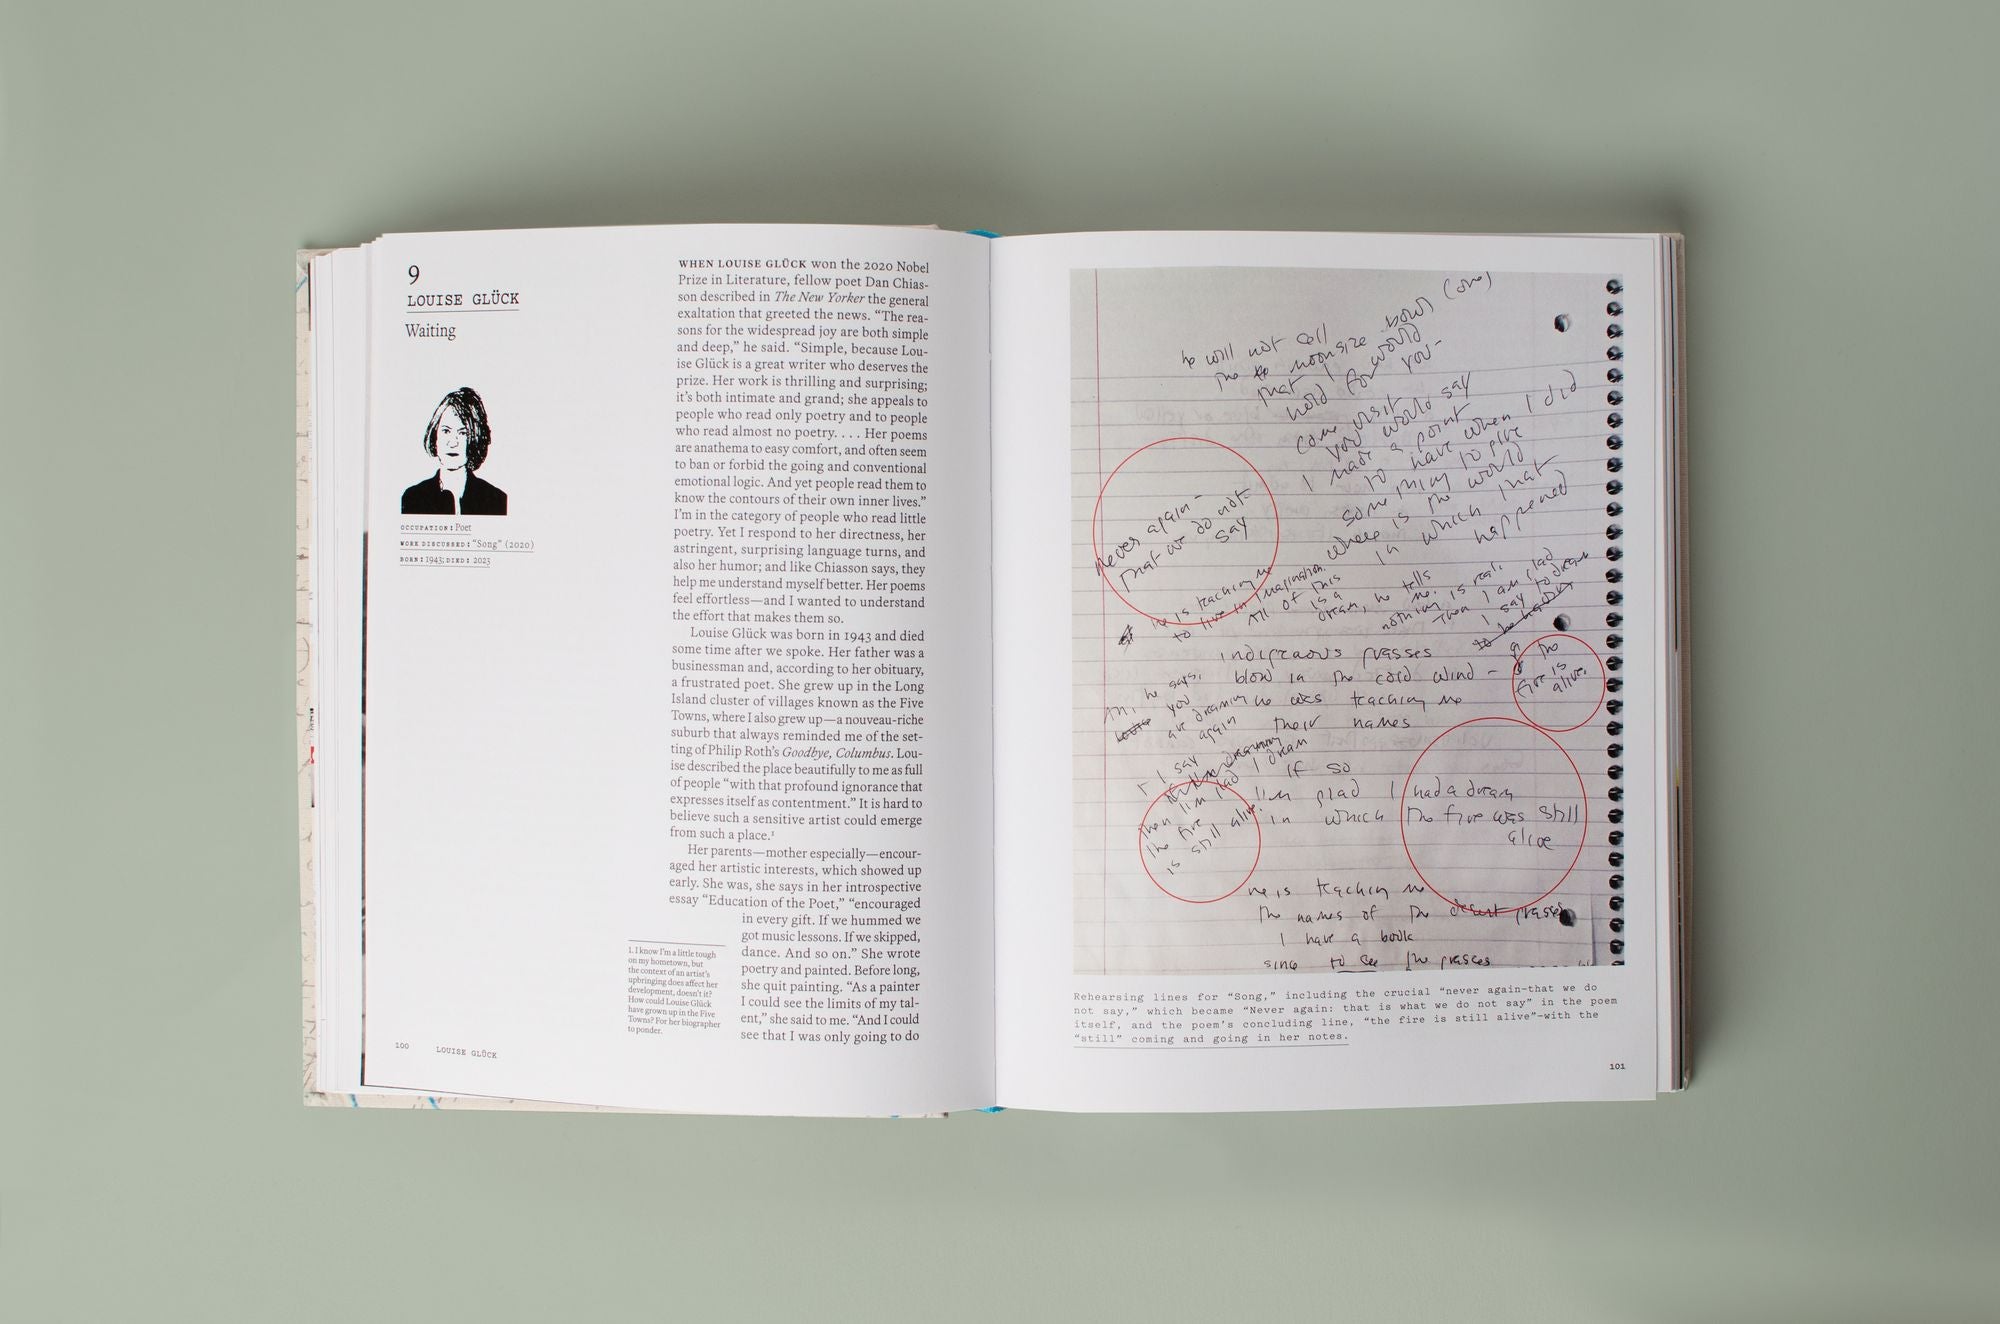 9
LOUISE GLÜCK
Waiting
OCCUPATION: Poet
WORK DISCUSSED: "Song" (2020)
BORN: 1943; DIED: 2023
WHEN LOUISE GLÜCK won the 2020 Nobel
Prize in Literature, fellow poet Dan Chias-
son described in The New Yorker the general
exaltation that greeted the news. “The rea-
sons for the widespread joy are both simple
and deep,” he said. “Simple, because Lou-
ise Glück is a great writer who deserves the
prize. Her work is thrilling and surprising;
it’s both intimate and grand; she appeals to
people who read only poetry and to people
who read almost no poetry. . . . Her poems
are anathema to easy comfort, and often seem
to ban or forbid the going and conventional
emotional logic. And yet people read them to
know the contours of their own inner lives.”
I’m in the category of people who read little
poetry. Yet I respond to her directness, her
astringent, surprising language turns, and
also her humor; and like Chiasson says, they
help me understand myself better. Her poems
feel effortless—and I wanted to understand
the effort that makes them so.
Louise Glück was born in 1943 and died
some time after we spoke. Her father was a
businessman and, according to her obituary,
a frustrated poet. She grew up in the Long
Island cluster of villages known as the Five
Towns, where I also grew up—a nouveau-riche
suburb that always reminded me of the set-
ting of Philip Roth’s Goodbye, Columbus. Lou-
ise described the place beautifully to me as full
of people “with that profound ignorance that
expresses itself as contentment.” It is hard to
believe such a sensitive artist could emerge
from such a place.¹
Her parents—mother especially—encour-
aged her artistic interests, which showed up
early. She was, she says in her introspective
essay “Education of the Poet,” “encouraged
in every gift. If we hummed we
got music lessons. If we skipped,
dance. And so on.” She wrote
poetry and painted. Before long,
she quit painting. “As a painter
I could see the limits of my tal-
ent,” she said to me. “And I could
see that I was only going to do
1. I know I’m a little tough
on my hometown, but
the context of an artist’s
upbringing does affect her
development, doesn’t it?
How could Louise Glück
have grown up in the Five
Towns? For her biographer
to ponder.
100 LOUISE GLÜCK
he will not sell
the moonsize bowl (one)
that I would
hold for you-
come visit
you would say
I made a point
to have when I did
something to give
where is the world
in which that
happened
never again-
that we do not
say
he is teaching me
to live in imagination.
All of this
is a
dream, he tells
me. nothing is real.
Then I am glad
I say to dream
the
fire is
alive.
indigenous grasses
blow in the cold wind -
he was teaching me
their names
Ah, he says,
you
are dreaming
again
I say
then I'm glad I dream
the fire
is still alive.
if so
I'm glad I had a dream
in which the fire was still
alive
he is teaching me
the names of the desert grasses
I have a book
since to see the grasses
Rehearsing lines for “Song,” including the crucial “never again—that we do
not say,” which became “Never again: that is what we do not say” in the poem
itself, and the poem’s concluding line, “the fire is still alive”—with the
“still” coming and going in her notes.
101